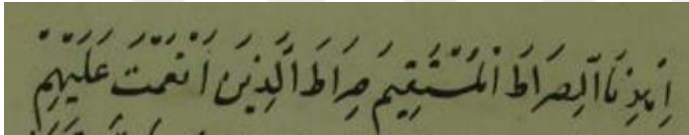 اِهْدِنَا الصِّرَاطَ الْمُسْتَقِيمَ صِرَاطَ الَّذِينَ اَنْعَمْتَ عَلَيْهِمْ